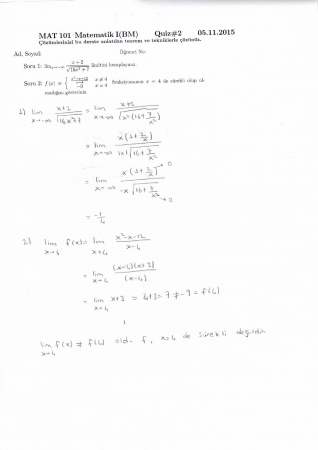 MAT 101 Matematik I(BM) Quiz#2 05.11.2015
Çözümlerinizi bu derste anlatılan teorem ve tekniklerle çözünüz.
Ad, Soyad: Öğrenci No:
Soru 1: lim x→-∞ (x+2)/√(16x²+7) limitini hesaplayınız.
Soru 2: f(x) = { (x²-x-12)/(x-4) x ≠ 4 ; -9 x = 4 fonksiyonunun x = 4 de sürekli olup ol-
madığını gösteriniz.
1) lim x→-∞ (x+2)/√(16x²+7) = lim x→-∞ (x+2)/√(x²(16+7/x²))
= lim x→-∞ x(1+2/x)/(|x|√(16+7/x²))
= lim x→-∞ x(1+2/x)/(-x√(16+7/x²)) → 0 → 0
= -1/4
2) lim x→4 f(x) = lim x→4 (x²-x-12)/(x-4)
= lim x→4 (x-4)(x+3)/(x-4)
= lim x→4 x+3 = 4+3 = 7 ≠ -9 = f(4)
lim x→4 f(x) ≠ f(4) old. f, x=4 de sürekli değildir.